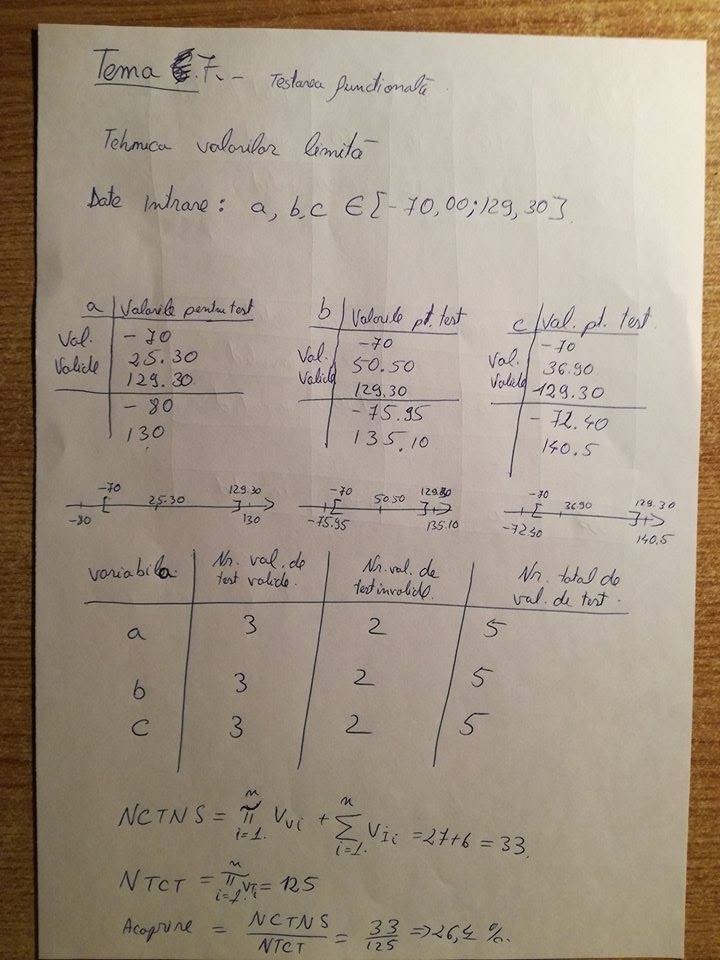 Tema 7. - Testarea funcționată
Tehnica valorilor limită
Date intrare: a, b, c ∈ [-70,00; 129,30].
a | Valorile pentru test
Val. Valide
-70
25.30
129.30
-80
130
b | Valorile pt. test
Val. Valide
-70
50.50
129.30
-75.95
135.10
c | Val. pt. test
Val. Valide
-70
36.90
129.30
-72.40
140.5
-70 129.30
25.30
-80 130
-70 129.30
50.50
-75.95 135.10
-70 129.30
36.90
-72.40 140.5
variabila | Nr. val. de test valide. | Nr. val. de test invalide. | Nr. total de val. de test.
a 3 2 5
b 3 2 5
c 3 2 5
NCTNS = ∏ⁿᵢ₌₁ V_Vi + ∑ⁿᵢ₌₁ V_Ii = 27+6 = 33.
NTCT = ∏ⁿᵢ₌₁ V_Ti = 125
Acoprire = NCTNS/NTCT = 33/125 => 26,4 %.